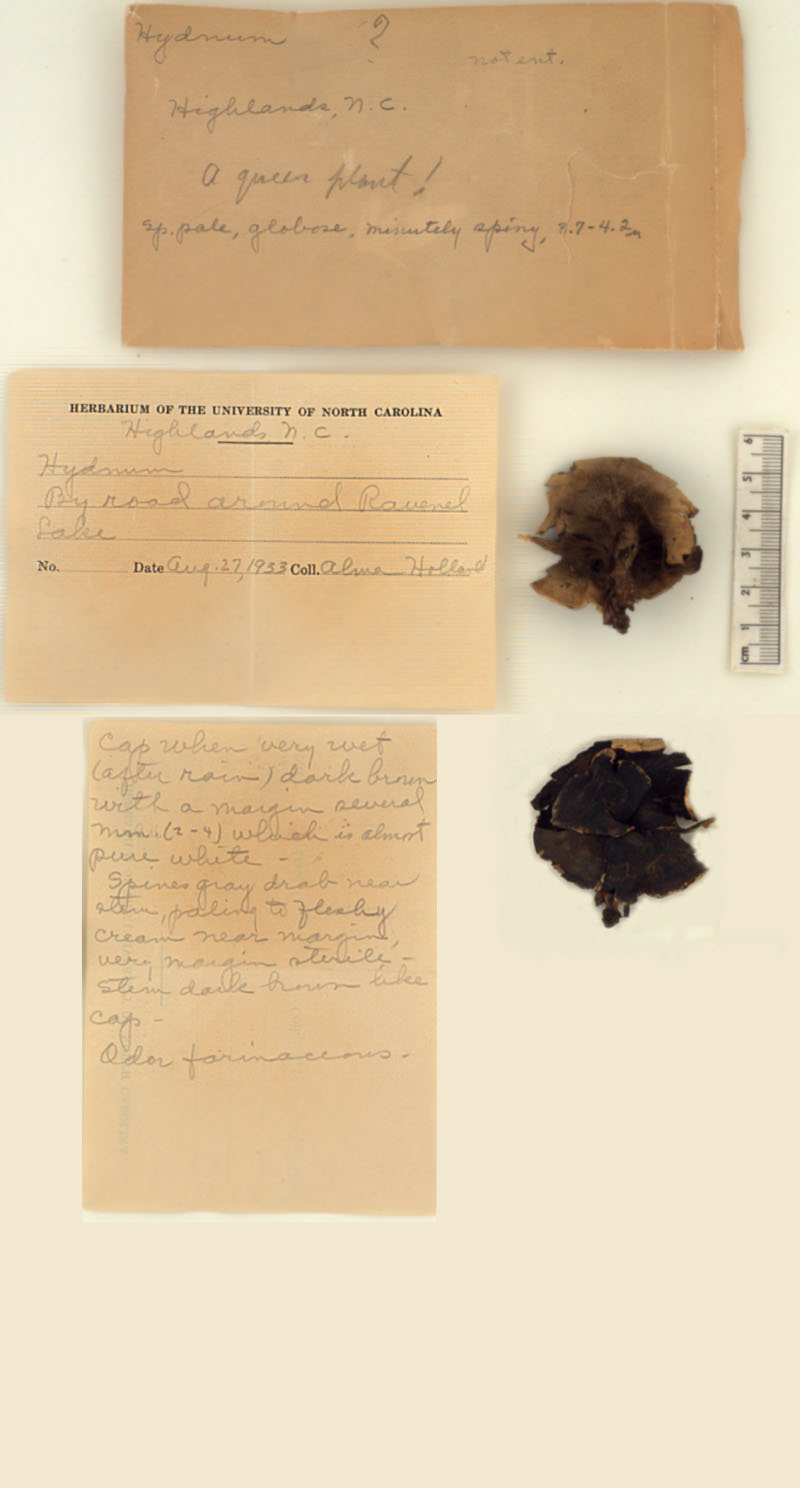 Hydnum ?
not ent.
Highlands, N.C.
A queer plant!
Sp. pale, globose, minutely spiny, 3.7-4.2µ
HERBARIUM OF THE UNIVERSITY OF NORTH CAROLINA
Highlands N.C.
Hydnum
By road around Ravenel
Lake
No. Date Aug. 27, 1933 Coll. Alma Holland
6
5
4
3
2
1
cm
Cap when very wet
(after rain) dark brown
with a margin several
mm. (2-4) which is almost
pure white -
Spines gray drab near
stem, paling to fleshy
cream near margin,
very margin sterile -
Stem dark brown like
cap -
Odor farinaceous -